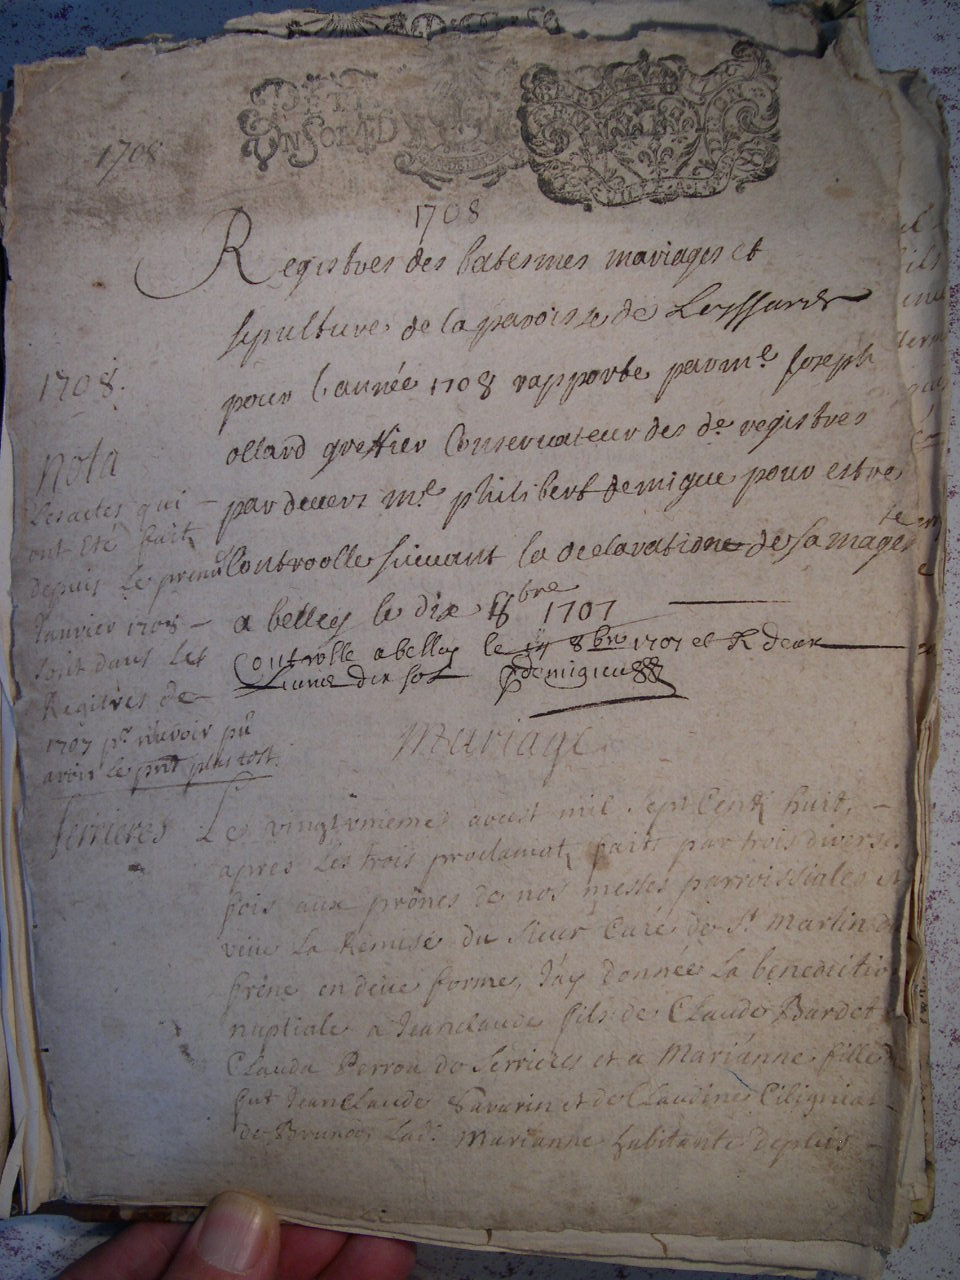 1708
1708
Registres des batesmes mariages et
sepulture de la paroisse de Leyssard
pour l'année 1708 rapporte par me Joseph
ollard greffier Conservateur des de registres
par devers me philibert demigieu pour estre
Controolle suivant la declaration de sa mageste
a belley le dix 8bre 1707
Controlle a belley le 8bre 1707 et R deux
Livres dix sol Demigieu
1708.
Nota
Les actes qui
ont Eté fait
depuis Le premr
Janvier 1708
sont dans Les
Regitres de
1707 pr n'avoir pu
avoir le pnt plus tost.
Mariage
Serrieres
Le vingtvnieme aoust mil sept Cent huit,
apres Les trois proclamat faits par trois diverses
fois aux prônes de nos messes parroissiales et
vüe La Remise du Sieur Curé de St Martin de
frêne en deüe forme, J'ay donnée La benedictio
nuptiale a Jeanclaude fils de Claude Bardet
Clauda Perron de Serrieres et a Marianne fille
fut Jeanclaude Savarin et de Claudine
de Lad. Marianne habitante depuis